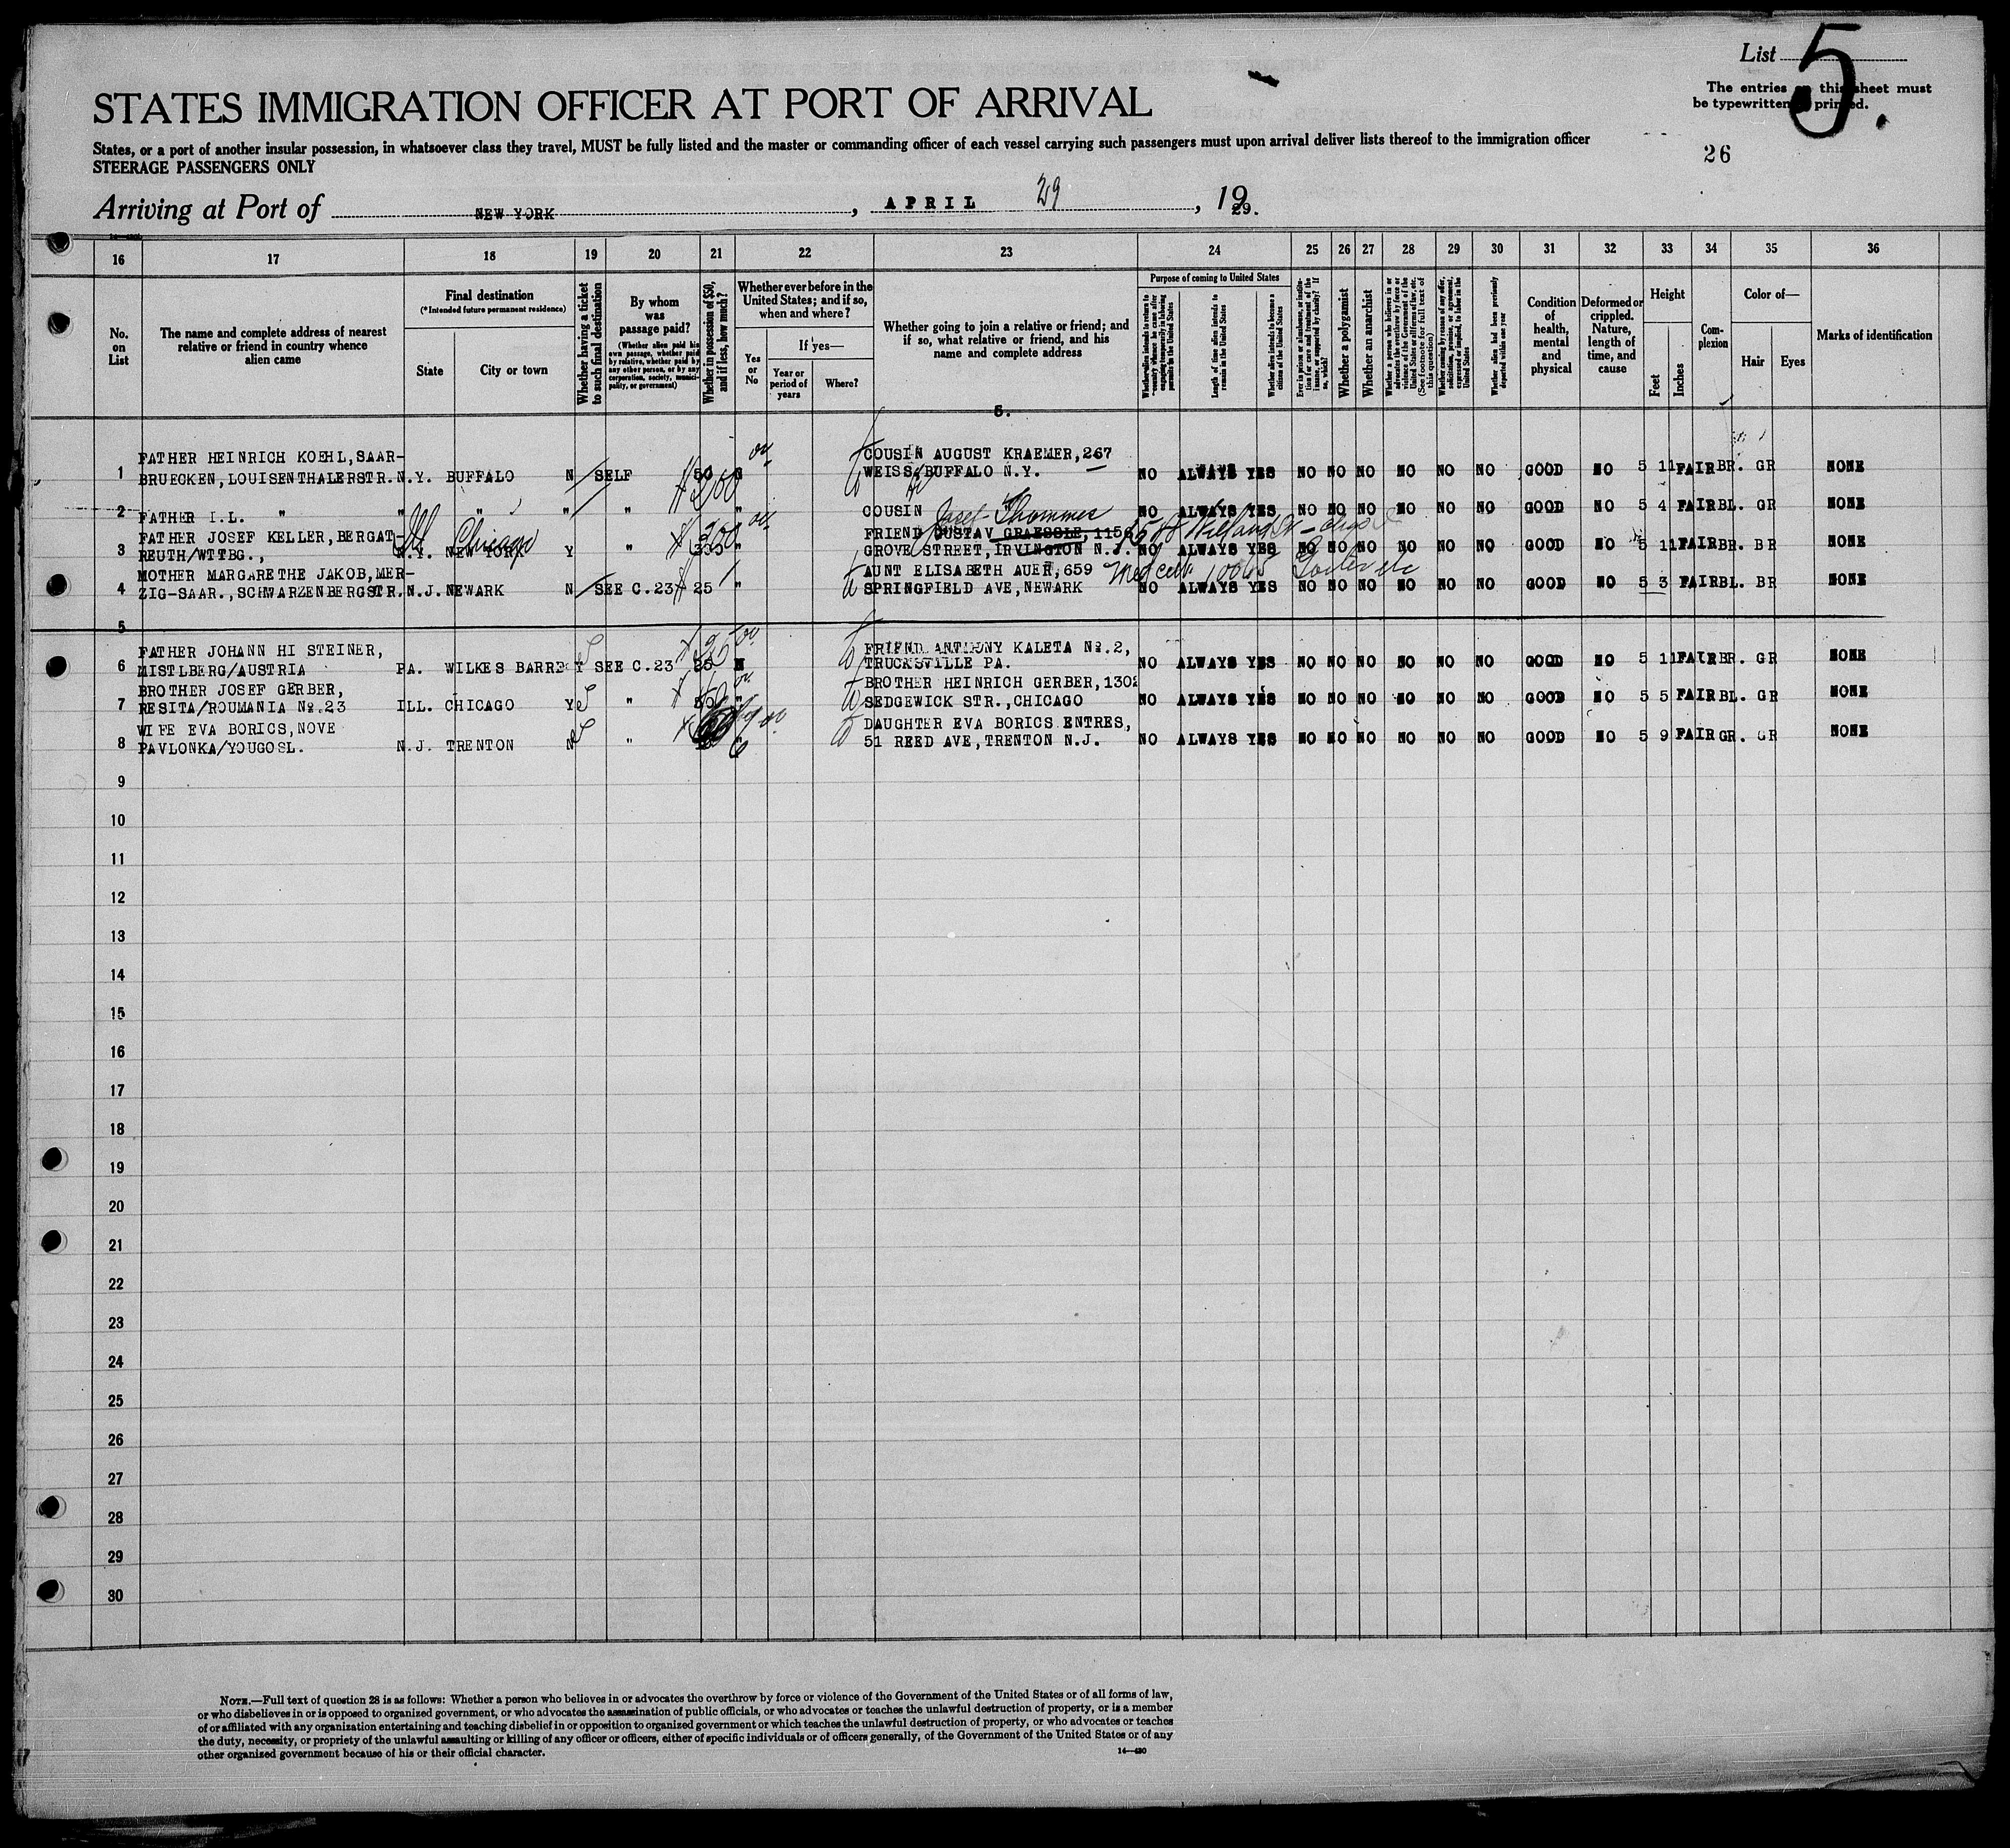 List 5.
The entries on this sheet must
be typewritten or printed.
STATES IMMIGRATION OFFICER AT PORT OF ARRIVAL
States, or a port of another insular possession, in whatsoever class they travel, MUST be fully listed and the master or commanding officer of each vessel carrying such passengers must upon arrival deliver lists thereof to the immigration officer
STEERAGE PASSENGERS ONLY
26
Arriving at Port of NEW YORK, APRIL 29, 1929.
16 17 18 19 20 21 22 23 24 25 26 27 28 29 30 31 32 33 34 35 36
No. on List
The name and complete address of nearest relative or friend in country whence alien came
Final destination
(*Intended future permanent residence)
State
City or town
Whether having a ticket to such final destination
By whom was passage paid?
(Whether alien paid his own passage, whether paid by relative, whether paid by any other person, or by any corporation, society, municipality, or government)
Whether in possession of $50, and if less, how much?
Whether ever before in the United States; and if so, when and where?
Yes or No
If yes—
Year or period of years
Where?
Whether going to join a relative or friend; and if so, what relative or friend, and his name and complete address
5.
Purpose of coming to United States
Length of time alien intends to remain in the United States
Whether alien intends to become a citizen of the United States
Whether a polygamist
Whether an anarchist
Whether alien had been previously deported within one year
Condition of health, mental and physical
Deformed or crippled. Nature, length of time, and cause
Height
Feet
Inches
Com-plexion
Color of—
Hair
Eyes
Marks of identification
FATHER HEINRICH KOEHL,SAAR- COUSIN AUGUST KRAEMER,267
1 BRUECKEN,LOUISENTHALERSTR. N.Y. BUFFALO N SELF 50 N WEISS,BUFFALO N.Y. NO ALWAYS YES NO NO NO NO NO NO GOOD NO 5 11 FAIR BR. GR NONE
2 FATHER I.L. " " " " " " COUSIN " NO ALWAYS YES NO NO NO NO NO NO GOOD NO 5 4 FAIR BL. GR NONE
FATHER JOSEF KELLER,BERGAT- Ill Chicago 300 FRIEND GUSTAV GRAESSLE,1156 Josef Thommes
3 REUTH/WTTBG., N.Y. NEW YORK Y " " GROVE STREET,IRVINGTON N.J. NO ALWAYS YES NO NO NO NO NO NO GOOD NO 5 11 FAIR BR. BR NONE
MOTHER MARGARETHE JAKOB,MER- AUNT ELISABETH AUER,659 Med cert
4 ZIG-SAAR.,SCHWARZENBERGSTR. N.J. NEWARK N SEE C.23 25 " SPRINGFIELD AVE,NEWARK NO ALWAYS YES NO NO NO NO NO NO GOOD NO 5 3 FAIR BL. BR NONE
5
FATHER JOHANN HI STEINER, FRIEND ANTHONY KALETA No.2,
6 MISTLBERG/AUSTRIA PA. WILKES BARRE Y SEE C.23 25 N TRUCKSVILLE PA. NO ALWAYS YES NO NO NO NO NO NO GOOD NO 5 11 FAIR BR. GR NONE
BROTHER JOSEF GERBER, BROTHER HEINRICH GERBER,1302
7 RESITA/ROUMANIA No.23 ILL. CHICAGO Y " 50 " SEDGEWICK STR.,CHICAGO NO ALWAYS YES NO NO NO NO NO NO GOOD NO 5 5 FAIR BL. GR NONE
WIFE EVA BORICS,NOVE DAUGHTER EVA BORICS ENTRES,
8 PAVLONKA/YOUGOSL. N.J. TRENTON N " 51 REED AVE,TRENTON N.J. NO ALWAYS YES NO NO NO NO NO NO GOOD NO 5 9 FAIR GR. GR NONE
9
10
11
12
13
14
15
16
17
18
19
20
21
22
23
24
25
26
27
28
29
30
NOTE.—Full text of question 28 is as follows: Whether a person who believes in or advocates the overthrow by force or violence of the Government of the United States or of all forms of law,
or who disbelieves in or is opposed to organized government, or who advocates the assassination of public officials, or who advocates or teaches the unlawful destruction of property, or is a member
of or affiliated with any organization entertaining and teaching disbelief in or opposition to organized government or which teaches the unlawful destruction of property, or who advocates or teaches
the duty, necessity, or propriety of the unlawful assaulting or killing of any officer or officers, either of specific individuals or of officers generally, of the Government of the United States or of any
other organized government because of his or their official character.
14—430